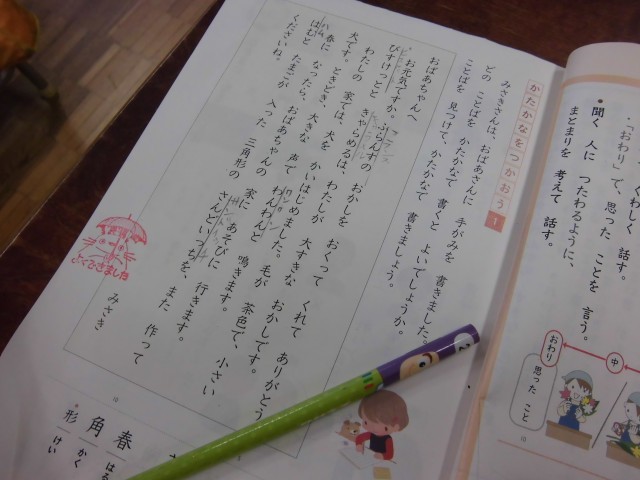 くわしく 話す。
・「おわり」で、思った ことを 言う。
●聞く 人に つたわるように、
まとまりを 考えて 話す。
中
おわり
思った こと
かたかなを つかおう 1
みさきさんは、おばあさんに 手がみを 書きました。
どの ことばを かたかなで 書くと よいでしょうか。
ことばを 見つけて、かたかなで 書きましょう。
おばあちゃんへ
お元気ですか。ふらんすの おかしを おくって くれて ありがとう。
びすけっとと きゃらめるは、わたしが 大すきな おかしです。
わたしの 家では、犬を かいはじめました。毛が 茶色で、小さい
犬です。ときどき、大きな 声で わんわんと 鳴きます。
春に なったら、おばあちゃんの 家に あそびに 行きます。
はむと たまごが 入った 三角形の さんどいっちを、また 作って
くださいね。
みさき
フランス
ハム
ワンワン
よくできました
春 はる
角 かく
形 けい